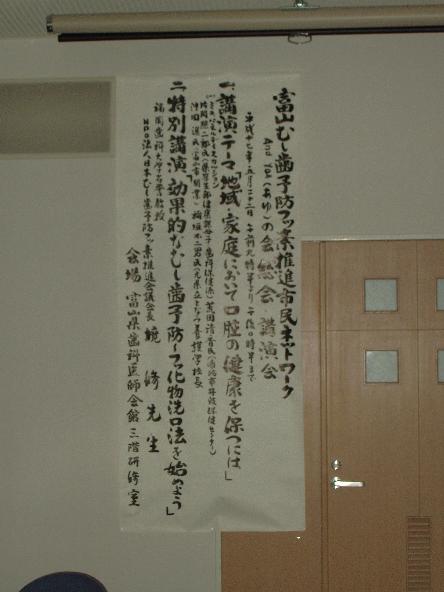 富山むし歯予防フッ素推進市民ネットワーク
(あゆ)の会 総会 講演会
平成十七年五月二十二日 午前九時半より 午後〇時半まで
一、講演テーマ「地域・家庭において口腔の健康を保つには」
二、特別講演「効果的なむし歯予防〜フッ化物洗口法を始めよう」
福岡歯科大学名誉教授
NPO法人日本むし歯予防フッ素推進会議会長 境 脩 先生
会場 富山県歯科医師会館 三階研修室